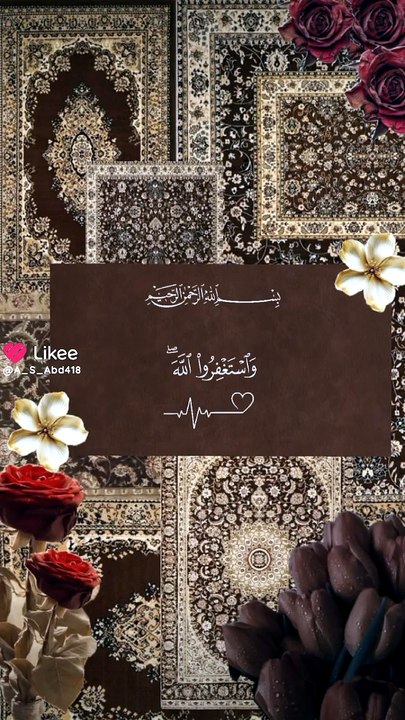 بِسْمِ ٱللَّهِ ٱلرَّحْمَٰنِ ٱلرَّحِيمِ
وَٱسْتَغْفِرُوا۟ ٱللَّهَ ۖ
Likee
@A_S_Abd418